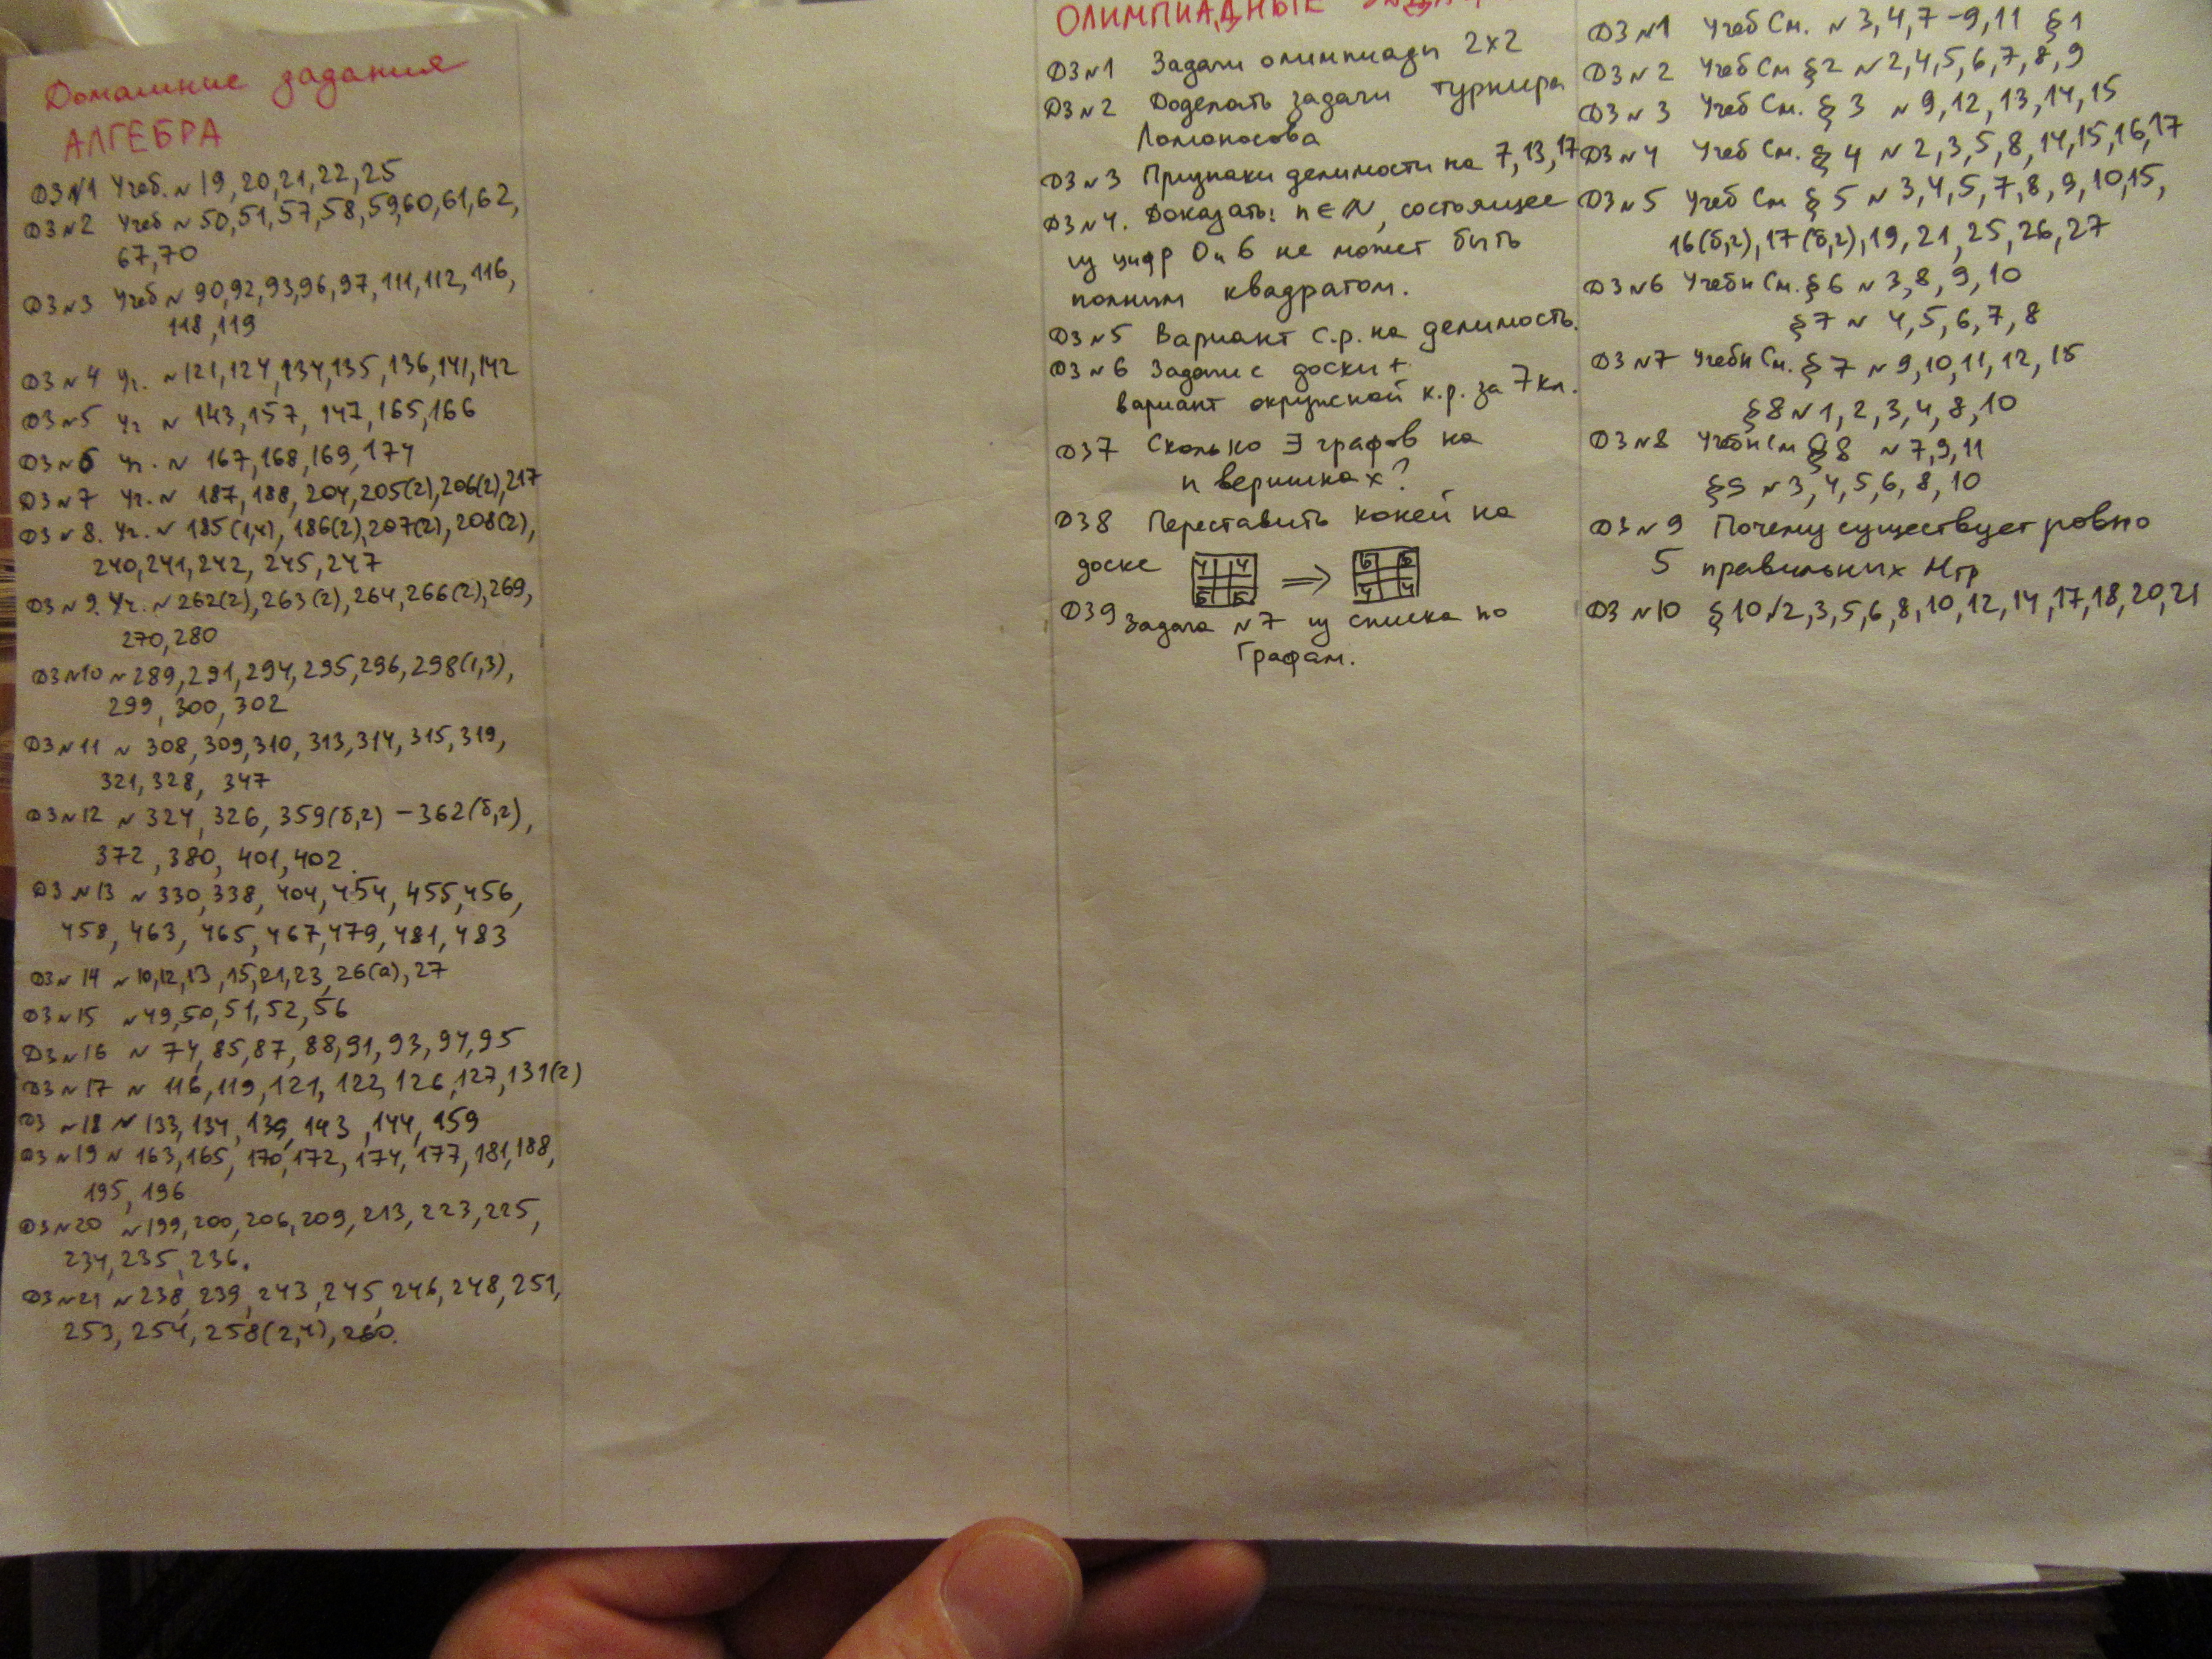 Домашние задания
АЛГЕБРА
ДЗ№1 Учеб. №19,20,21,22,25
ДЗ№2 Учеб №50,51,57,58,59,60,61,62,
67,70
ДЗ№3 Учеб №90,92,93,96,97,111,112,116,
118,119
ДЗ№4 Уч. №121,124,134,135,136,141,142
ДЗ№5 Уч №143,157,147,165,166
ДЗ№6 Уч. №167,168,169,174
ДЗ№7 Уч. №187,188,204,205(2),206(2),217
ДЗ№8. Уч. №185(1,4),186(2),207(2),208(2),
240,241,242,245,247
ДЗ№9. Уч. №262(2),263(2),264,266(2),269,
270,280
ДЗ№10 №289,291,294,295,296,298(1,3),
299,300,302
ДЗ№11 №308,309,310,313,314,315,319,
321,328,347
ДЗ№12 №324,326,359(б,г)-362(б,г),
372,380,401,402.
ДЗ№13 №330,338,404,454,455,456,
458,463,465,467,479,481,483
ДЗ№14 №10,12,13,15,21,23,26(а),27
ДЗ№15 №49,50,51,52,56
ДЗ№16 №74,85,87,88,91,93,94,95
ДЗ№17 №116,119,121,122,126,127,131(2)
ДЗ №18 №133,134,139,143,144,159
ДЗ№19 №163,165,170,172,174,177,181,188,
195,196
ДЗ№20 №199,200,206,209,213,223,225,
234,235,236.
ДЗ№21 №238,239,243,245,246,248,251,
253,254,258(2,4),260.
ОЛИМПИАДНЫЕ
ДЗ№1 Задачи олимпиады 2х2
ДЗ№2 Доделать задачи турнира
Ломоносова
ДЗ№3 Признаки делимости на 7,13,17
ДЗ№4. Доказать: n∈N, состоящее
из цифр 0 и 6 не может быть
полным квадратом.
ДЗ№5 Вариант с.р. на делимость.
ДЗ№6 Задачи с доски +
вариант окружной к.р. за 7кл.
ДЗ7 Сколько ∃ графов на
n вершинах?
ДЗ8 Переставить коней на
доске Ч Ч Б Б ⇒ Б Б Ч Ч
ДЗ9 Задача №7 из списка по
Графам.
ДЗ№1 Учеб См. №3,4,7-9,11 §1
ДЗ№2 Учеб См §2 №2,4,5,6,7,8,9
ДЗ№3 Учеб См. §3 №9,12,13,14,15
ДЗ№4 Учеб См. §4 №2,3,5,8,14,15,16,17
ДЗ№5 Учеб См §5 №3,4,5,7,8,9,10,15,
16(б,г),17(б,г),19,21,25,26,27
ДЗ№6 Учебн См. §6 №3,8,9,10
§7 №4,5,6,7,8
ДЗ№7 Учебн См. §7 №9,10,11,12,15
§8№1,2,3,4,8,10
ДЗ№8 Учебн См §8 №7,9,11
§9 №3,4,5,6,8,10
ДЗ№9 Почему существует ровно
5 правильных Мгр
ДЗ№10 §10№2,3,5,6,8,10,12,14,17,18,20,21